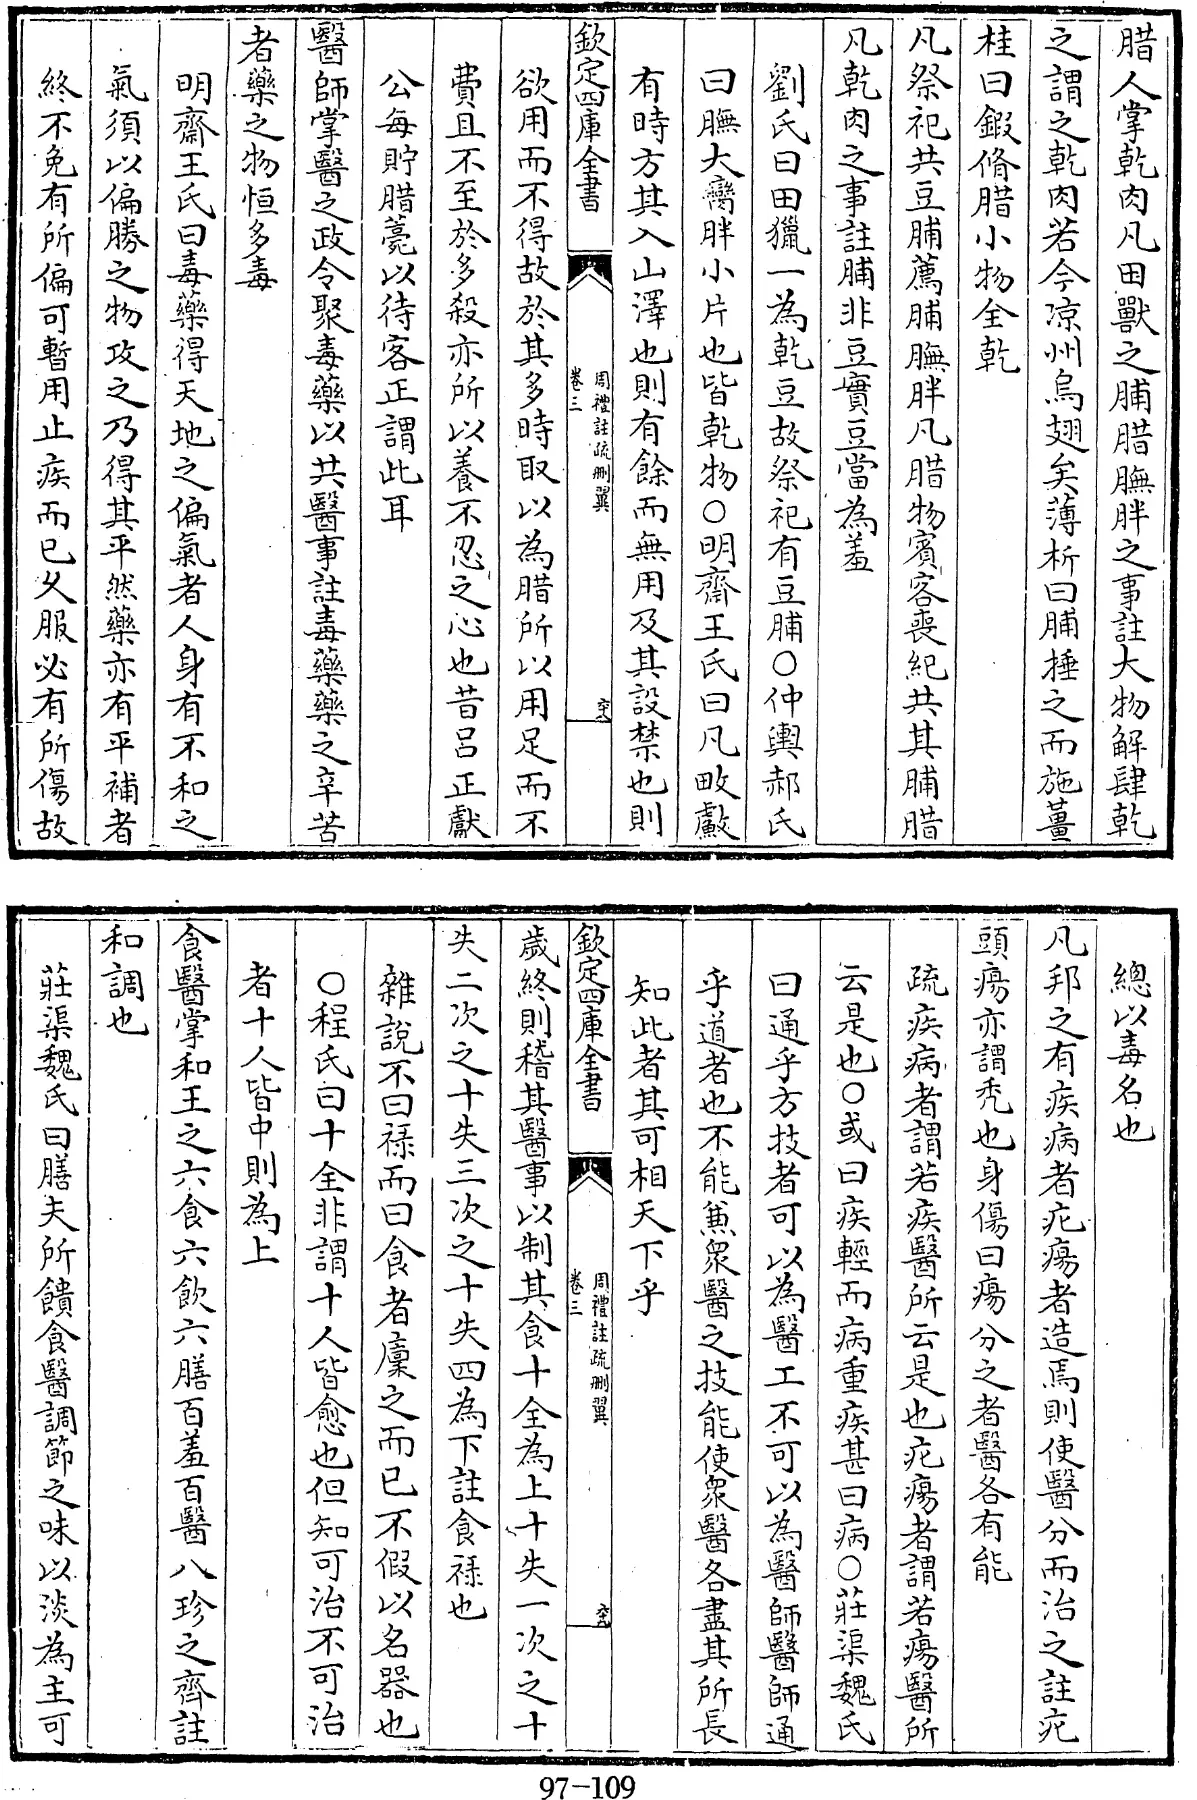 腊人掌乾肉凡田獸之脯腊膴胖之事註大物解肆乾
之謂之乾肉若今凉州烏翅矣薄析曰脯捶之而施薑
桂曰鍜脩腊小物全乾
凡祭祀共豆脯薦脯膴胖凡腊物賓客喪紀共其脯腊
凡乾肉之事註脯非豆實豆當為羞
劉氏曰田獵一為乾豆故祭祀有豆脯〇仲輿郝氏
曰膴大臠胖小片也皆乾物〇明齋王氏曰凡畋𤣥
有時方其入山澤也則有餘而無用及其設禁也則
欽定四庫全書
周禮註疏刪翼
卷三
六十八
欲用而不得故於其多時取以為腊所以用足而不
費且不至於多殺亦所以養不忍之心也昔呂正獻
公每貯腊薧以待客正謂此耳
醫師掌醫之政令聚毒藥以共醫事註毒藥藥之辛苦
者藥之物恒多毒
明齋王氏曰毒藥得天地之偏氣者人身有不和之
氣須以偏勝之物攻之乃得其平然藥亦有平補者
終不免有所偏可暫用止疾而已久服必有所傷故
總以毒名也
凡邦之有疾病者疕瘍者造焉則使醫分而治之註疕
頭瘍亦謂秃也身傷曰瘍分之者醫各有能
疏疾病者謂若疾醫所云是也疕瘍者謂若瘍醫所
云是也〇或曰疾輕而病重疾甚曰病〇莊渠魏氏
曰通乎方技者可以為醫工不可以為醫師醫師通
乎道者也不能兼衆醫之技能使衆醫各盡其所長
知此者其可相天下乎
欽定四庫全書
周禮註疏刪翼
卷三
六十九
歲終則稽其醫事以制其食十全為上十失一次之十
失二次之十失三次之十失四為下註食祿也
雜說不曰祿而曰食者廩之而已不假以名器也
〇程氏曰十全非謂十人皆愈也但知可治不可治
者十人皆中則為上
食醫掌和王之六食六飲六膳百羞百醫八珍之齊註
和調也
莊渠魏氏曰膳夫所饋食醫調節之味以淡為主可
97-109